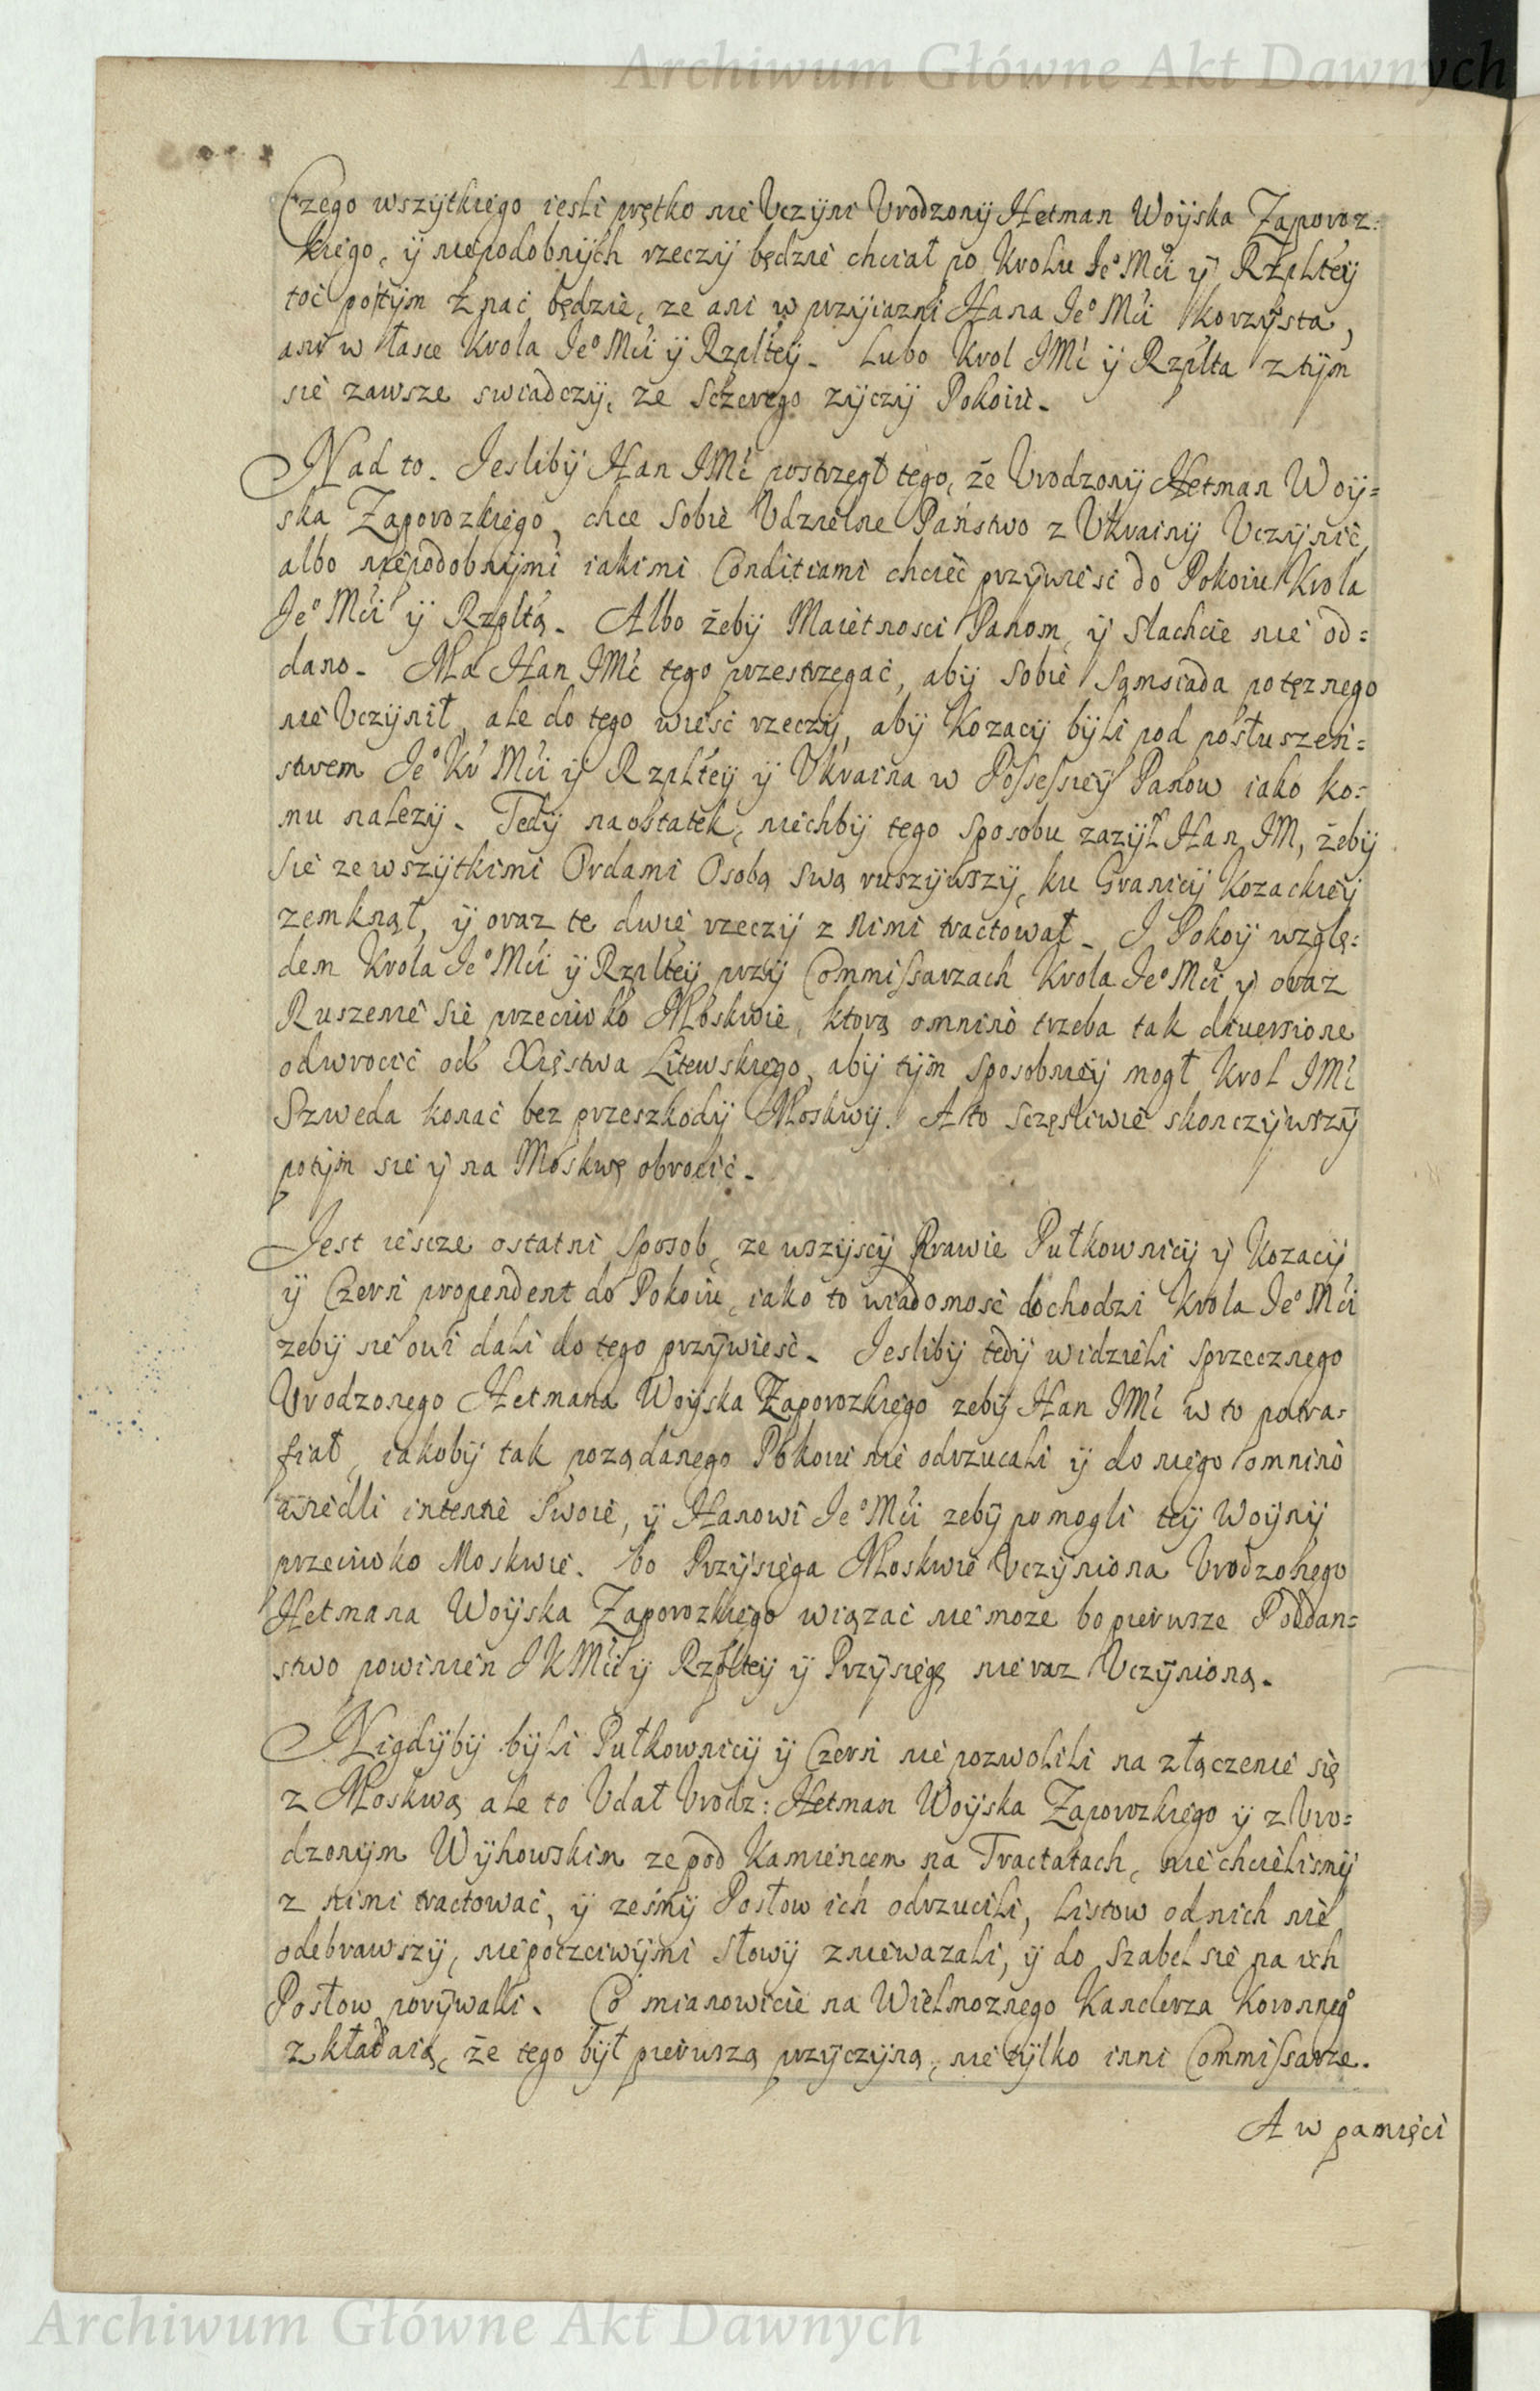 Archiwum Główne Akt Dawnych
Czego wszytkiego iesli prętko nie Vczyni Vrodzony Hetman Woyska Zaporoz=
kiego, y niepodobnych rzeczy będzie chciał po Krolu Ie° Mći y Rzpltey
toć potym znać będzie, ze ani w przyiazni Hana Ie° Mći korzysta,
ani w łasce Krola Ie° Mći y Rzpltey. Lubo Krol IMć y Rzplta z tym
sie zawsze swiadczy, ze sczerego zyczy Pokoiu.
Nad to. Iesliby Han IMć postrzegł tego, że Vrodzony Hetman Woy=
ska Zaporozkiego, chce sobie Vdzielne Państwo z Vkrainy Vczynić,
albo niepodobnymi iakimi Conditiami chcieć przywiesc do Pokoiu Krola
Ie° Mći y Rzpltą. Albo żeby Maiętnosci Panom, y Slachcie nie od=
dano. Ma Han IMć tego przestrzegać, aby sobie Sąmsiada potęznego
nie Vczynił, ale do tego wieść rzeczy, aby Kozacy byli pod posłuszeń=
stwem Ie° Kr Mći y Rzpltey y Vkraina w Possessiey Panow iako ko=
mu nalezy. Tedy naostatek, niechby tego sposobu zazył Han IM, żeby
sie ze wszytkimi Ordami Osobą swą ruszywszy, ku Granicy Kozackiey
zemknął, y oraz te dwie rzeczy z nimi tractował. I Pokoy wzglę=
dem Krola Ie° Mći y Rzpltey przy Commissarzach Krola Ie° Mći y oraz
Ruszenie sie przeciwko Moskwie, ktorą omnino trzeba tak diuersione
odwrocić od Xięstwa Litewskiego, aby tym sposobniey mogł Krol IMć
Szweda konać bez przeszkody Moskwy. A to sczęsliwie skonczywszy
potym sie y na Moskwę obrocić.
Iest iescze ostatni sposob, ze wszyscy Prawie Pułkownicy y Kozacy
y Czerni propendent do Pokoiu, iako to wiadomosc dochodzi Krola Ie° Mći
zeby sie oni dali do tego przywiesć. Iesliby tedy widzieli sprzecznego
Vrodzonego Hetmana Woyska Zaporozkiego zeby Han IMć w to potra=
fiał, iakoby tak poządanego Pokoiu nie odrzucali y do niego omnino
wiedli intentie swoie, y Hanowi Ie° Mći zeby pomogli tey Woyny
przeciwko Moskwie. bo Przysięga Moskwie Vczyniona Vrodzonego
Hetmana Woyska Zaporozkiego wiązać nie moze bo pierwsze Poddan=
stwo powinien I K Mći y Rzpltey y Przysięgę nie raz Vczynioną.
Nigdyby byli Pułkownicy y Czerni nie pozwolili na złączenie się
z Moskwą ale to Vdał Vrodz: Hetman Woyska Zaporozkiego y z Vro=
dzonym Wyhowskim ze pod Kamiencem na Tractatach, nie chcielismy
z nimi tractować, y ześmy Posłow ich odrzucili, listow od nich nie
odebrawszy, niepoczciwymi słowy zniewazali, y do Szabel sie na ich
Posłow porywali. Co mianowicie na Wielmoznego Kanclerza Koronneg°
zkładaią, że tego był pierwszą przyczyną, nie tylko inni Commissarze.
A w pamięci
Archiwum Główne Akt Dawnych